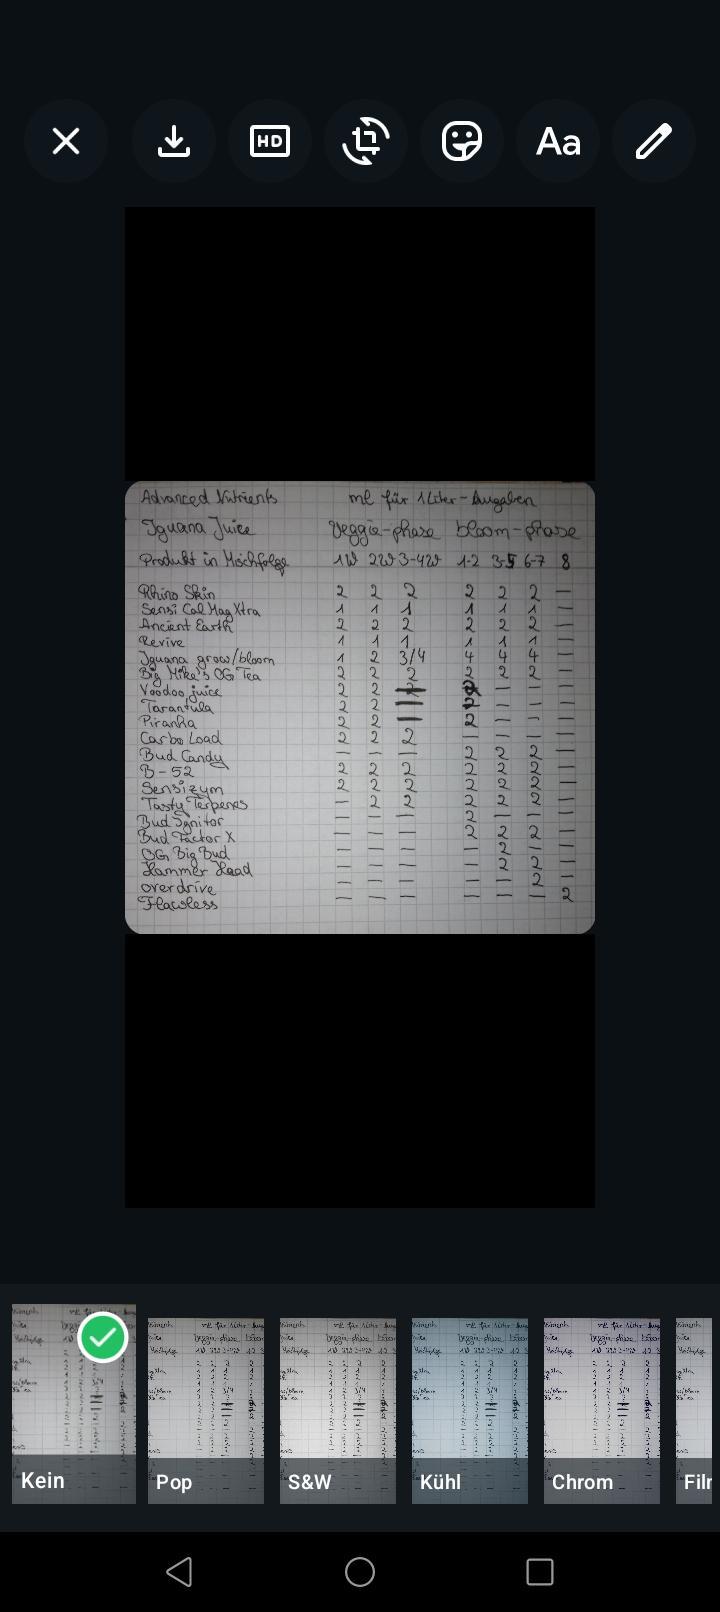 Aa
Advanced Nutrients ml für 1 Liter-Angaben
Iguana Juice Veggie-phase bloom-phase
Produkt in Mischfolge 1W 2W 3-4W 1-2 3-5 6-7 8
Rhino Skin 2 2 2 2 2 2 —
Sensi Cal Mag Xtra 1 1 1 1 1 1 —
Ancient Earth 2 2 2 2 2 2 —
Revive 1 1 1 1 1 1 —
Iguana grow/bloom 1 2 3/4 4 4 4 —
Big Mike's OG Tea 2 2 2 2 2 2 —
Voodoo juice 2 2 — 2 — — —
Tarantula 2 2 — 2 — — —
Piranha 2 2 — 2 — — —
Carbo Load 2 2 2 — — — —
Bud Candy — — — 2 2 2 —
B-52 2 2 2 2 2 2
Sensizym 2 2 2 2 2 2 —
Tasty Terpenes — 2 2 2 2 2 —
Bud Ignitor — — — 2 — — —
Bud Factor X — — — 2 2 2 —
OG Big Bud — — — — 2 — —
Hammer Head — — — — 2 2 —
overdrive — — — — — 2 —
Flawless — — — — — — 2
Kein Pop S&W Kühl Chrom